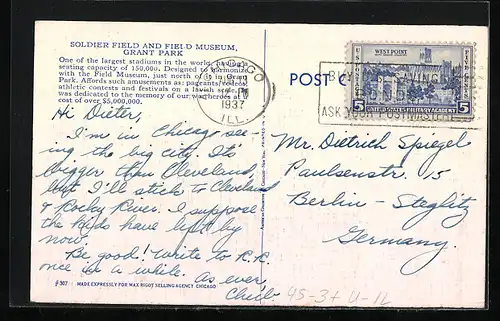 SOLDIER FIELD AND FIELD MUSEUM,
GRANT PARK
One of the largest stadiums in the world, having a
seating capacity of 150,000. Designed to harmonize
with the Field Museum, just north of it in Grant
Park. Affords such amusements as: pageants, circuses,
athletic contests and festivals on a lavish scale. It
was dedicated to the memory of our war heroes at a
cost of over $5,000,000.
Hi Dieter,
I'm in Chicago see-
ing the big city. It's
bigger than Cleveland,
but I'll stick to Cleveland
& Rocky River. I suppose
the kids have left by
now.
Be good! Write to R.R.
once in a while. As ever,
CHICAGO
1937
ILL.
POST
WEST POINT
5 UNITED STATES MILITARY ACADEMY 5
ASK YOUR POSTMASTER
Mr. Dietrich Spiegel
Paulsenstr. 15
Berlin - Steglitz
Germany.
F 307 MADE EXPRESSLY FOR MAX RIGOT SELLING AGENCY CHICAGO
45-3+ U-1L